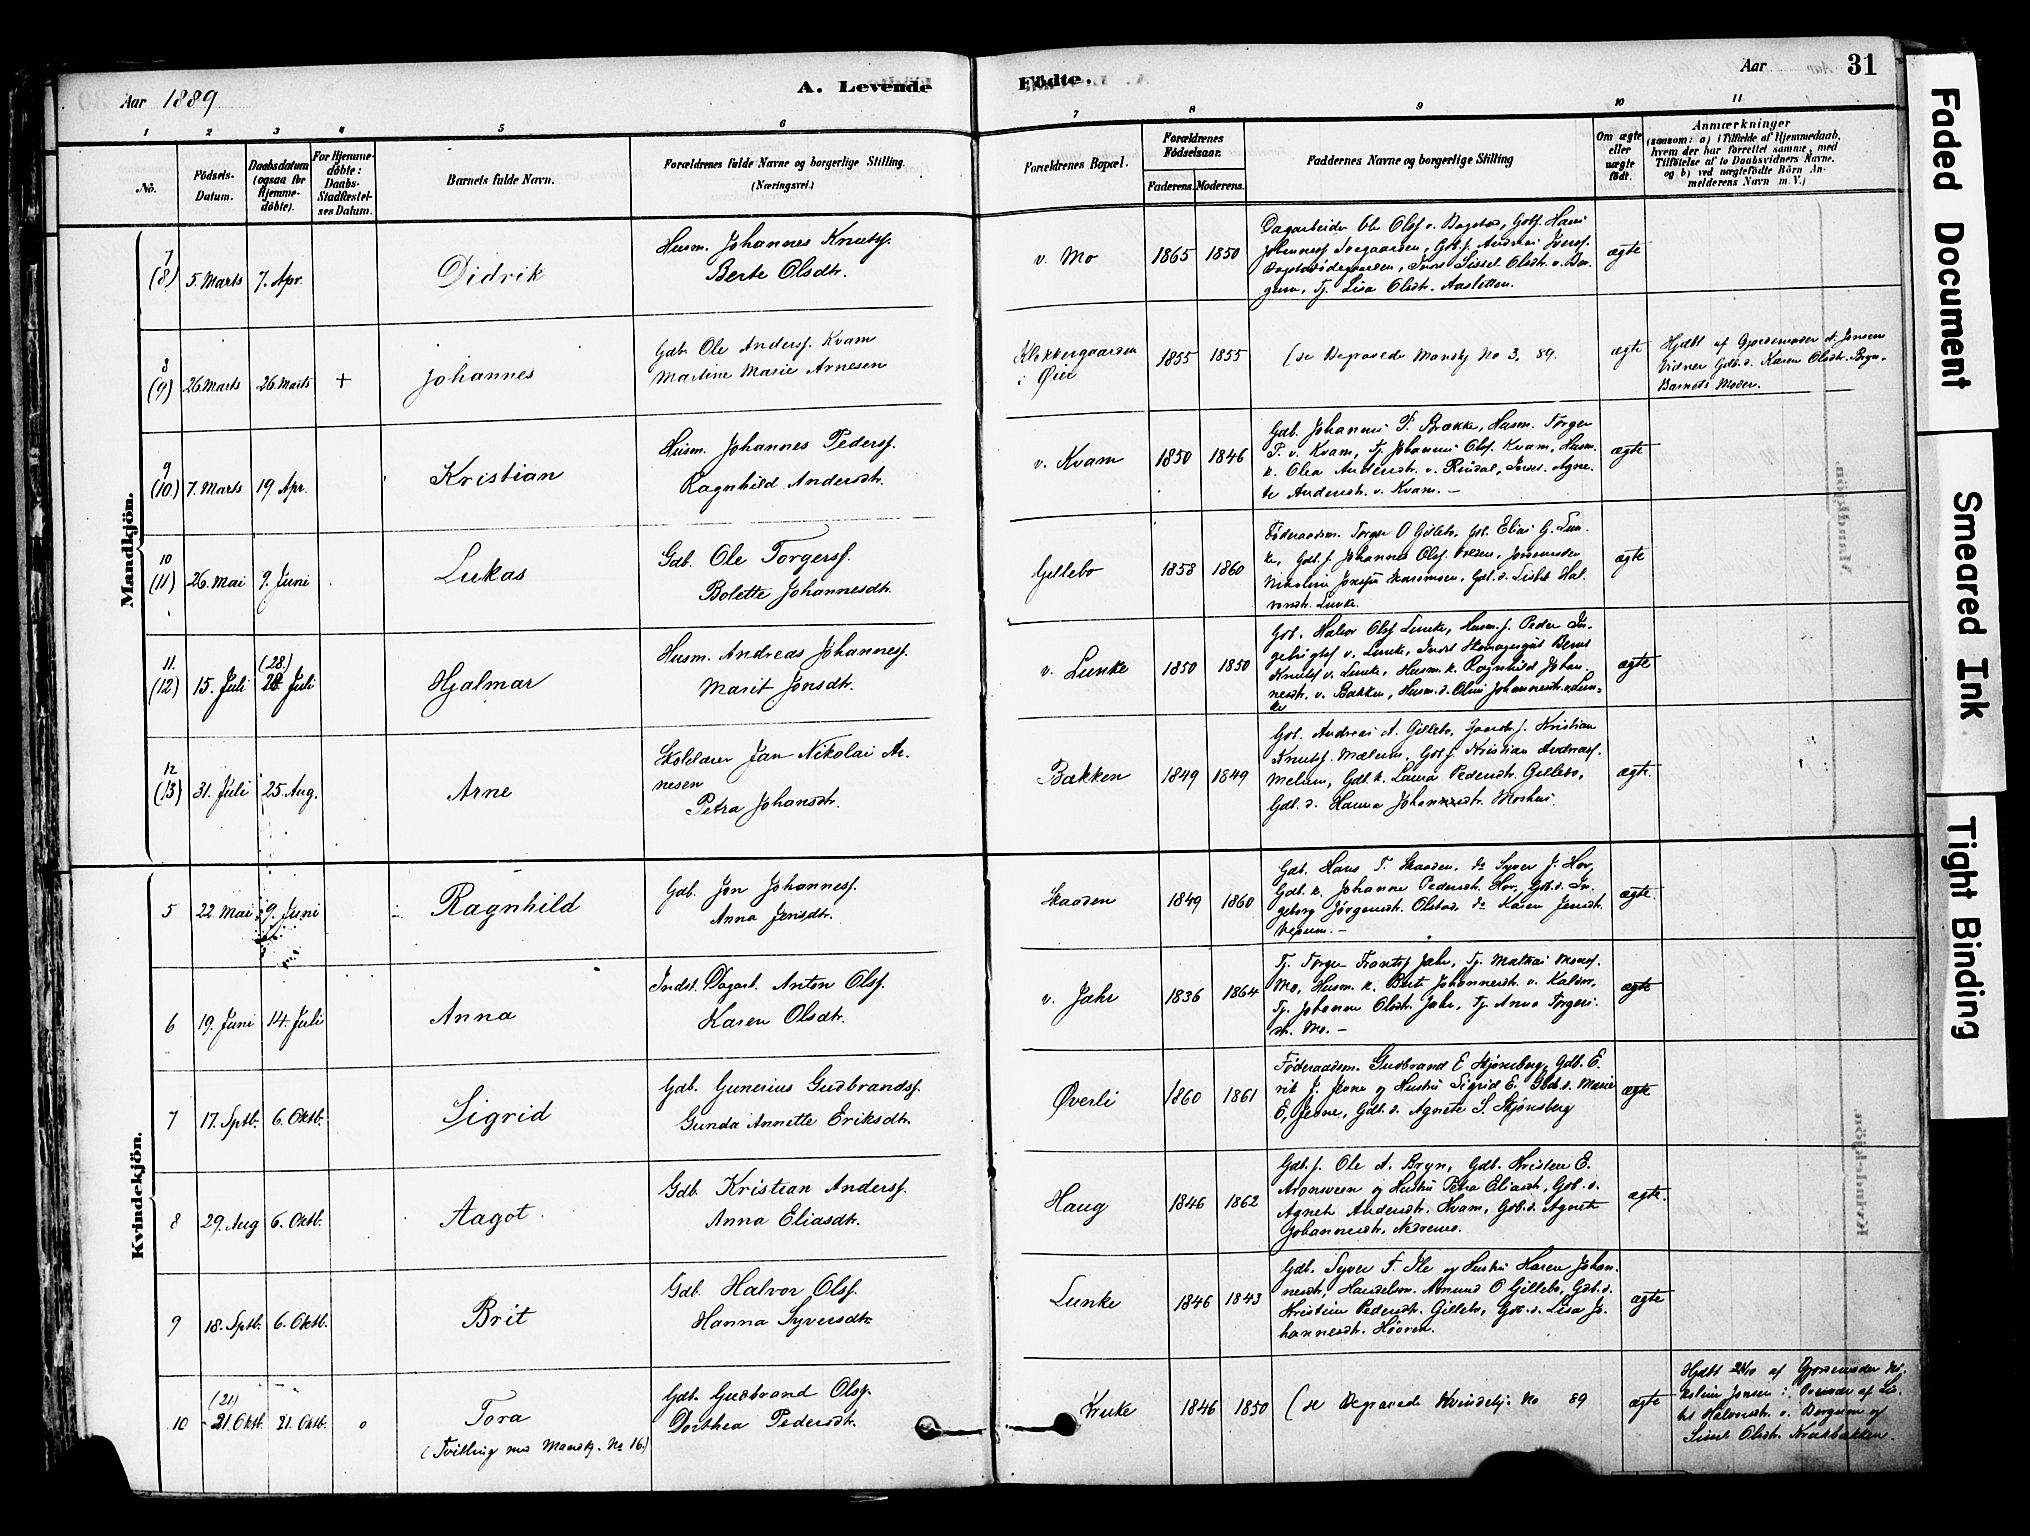 Aar 1889
A. Levende
Födte.
Aar
31
1 2 3 4 5 6 7 8 9 10 11
No.
Födsels-Datum.
Daabsdatum (ogsaa for Hjemme-döbte).
For Hjemme-döbte: Daabs-Stadfæstel-ses Datum.
Barnets fulde Navn.
Forældrenes fulde Navne og borgerlige Stilling. (Næringsvei.)
Forældrenes Bopæl.
Forældrenes Födselsaar.
Faderens. Moderens.
Faddernes Navne og borgerlige Stilling
Om ægte eller uægte födt.
Anmærkninger
(saasom: a) i Tilfælde af Hjemmedaab, hvem der har forrettet samme, med Tilföielse af to Daabsvidners Navne. og b) ved uægtefödte Börn An-melderens Navn m. V.)
Mandkjön.
7 (8) 5. Marts 7. Apr. Didrik
Husm. Johannes Knutsf.
Berte Olsdtr.
v. Mo 1865 1850
Dagarbeider Ole Olsf v. Bogstad, Gdbf. Hans
ægte
8 (9) 26 Marts 26 Marts + Johannes
Gdb. Ole Andersf. Kvam
Martine Marie Arnesen
Klokkergaarden i Øier 1855 1855
(se Begravede Mandkj No 3, 89.
ægte
Hjdbt af Gjordemoder A. Jensen
Vidner Gdb.d. Karen Olsdtr. Bryn.
Barnets Moder.
9 (10) 7. Marts 19 Apr. Kristian
Husm. Johannes Pedersf.
Ragnhild Andersdtr.
v. Kvam 1850 1846
Gdb. Johannes P. Brække, Husm. Torger
P. v. Kvam, Tj. Johannes Olsf. Kvam, Husm.
k. Olea Andersdtr. v. Rindal, Inds. Agne-
te Andersdtr. v. Kvam. –
ægte
10 (11) 26. Mai 9. Juni Lukas
Gdb. Ole Torgersf.
Bolette Johannesdtr.
Gillebo 1858 1860
Föderaadsm. Torger O Gillebo, Gdb. Elias G. Lun-
ke, Gdb.f. Johannes Olsf.
ægte
11. (12) 15. Juli (28.) 28. Juli Hjalmar
Husm. Andreas Johannesf.
Marit Jonsdtr.
v. Lunke 1850 1850
Gdb. Halvor Olsf Lunke, Husm.f. Peder In-
gebrigtsf v. Lunke, Inds
Knutsf v. Lunke, Husm. k. Ragnhild Johan-
nesdtr. v. Bakken, Husm.d. Oline Johannesdtr. v. Lun-
ke
ægte
12 (13) 31. Juli 25. Aug. Arne
Skolelærer Jan Nikolai Ar-
nesen
Petra Johansdtr.
Bakken 1849 1849
Gdb. Andreas A. Gillebo, Gaardbf. Kristian
Knutsf. Mælum, Gdb.f. Kristian Andreasf.
Melum, Gdb.k. Laura Pedersdtr. Gillebo,
Gdb. d. Hanna Johannesdtr. Moshus.
ægte.
Kvindekjön.
5 22 Mai 9. Juni Ragnhild
Gdb. Jon Johannesf.
Anna Jensdtr.
Skaaden 1849 1860
Gdb. Hans T. Skaaden, do Syver J. Hov,
Gdb. k. Johanne Pedersdtr. Hov, Gdb.d. In-
geborg Jörgensdtr. Olstad, do Karen Jensdtr.
ægte.
6 19. Juni 14. Juli Anna
Indst. Dagarb. Anton Olsf.
Karen Olsdtr.
v. Jahr 1836 1864
Tj. Torger Frantsf Jahr, Tj. Mathias Monsf.
Mo, Husm. k. Berte Johannesdtr. v. Kalvov,
Tj. Johanne Olsdtr. Jahr, Tj. Anna Torgers-
dtr. Mo. –
ægte
7 17. Sptb. 6. Oktb. Sigrid
Gdb. Gunerius Gudbrandsf.
Gunda Annette Eriksdtr.
Øverli 1860 1861
Föderaadsm. Gudbrand E Skjønsberg, Gdb. E-
rik J. Jevne og Hustru Sigrid E. Gdb.d. Marie
E. Jevne, Gdb.d. Agnete S. Skjønsberg
ægte
8 29. Aug 6. Oktb. Aagot.
Gdb. Kristian Andersf.
Anna Eliasdtr.
Haug 1846 1862
Gdb.f. Ole A. Bryn, Gdb. Kristen E.
Aronsveen og Hustru Petra Eliasdt, Gdb.d.
Agnete Andersdtr. Kvam, Gdb.d. Agnete
Johannesdtr.
ægte.
9 18. Sptb. 6. Oktb. Brit
Gdb. Halvor Olsf.
Hanna Syversdtr.
Lunke 1846 1843
Gdb. Syver F. Ile og Hustru Karen Johan-
nesdtr, Handelsm. Amund O Gillebo, Gdb.d.
Kristine Pedersdtr. Gillebo, Gdb.d. Lisa Jo-
hannesdtr. Hooven.
ægte
10 (21) 21. Oktb. 21. Oktb. o Tora
(Tvilling med Mandkj. No 16.)
Gdb. Gudbrand Olsf.
Dorthea Pedersdtr.
Kruke 1846 1850
(se Begravede Kvindekj. No 89
ægte
Hjdbt 21/10 af Gjordemoder Ni-
koline Jensen i Overvær af Lis-
bet Halvorsdtr. v. Bergum og
Sissel Olsdtr. Kruekbakken.
Faded Document
Smeared Ink
Tight Binding